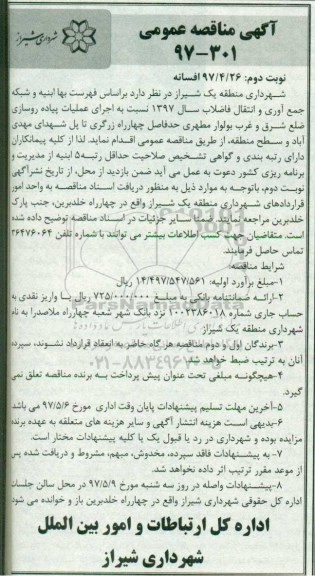 آگهی مناقصه عمومی
۹۷-۳۰۱
شهرداری شیراز
نوبت دوم: ۹۷/۴/۲۶ افسانه
شهرداری منطقه یک شیراز در نظر دارد براساس فهرست بها ابنیه و شبکه
جمع آوری و انتقال فاضلاب سال ۱۳۹۷ نسبت به اجرای عملیات پیاده روسازی
ضلع شرق و غرب بولوار مطهری حدفاصل چهارراه زرگری تا پل شهدای مهدی
آباد و سطح منطقه، از طریق مناقصه عمومی اقدام نماید. لذا از کلیه پیمانکاران
دارای رتبه بندی و گواهی تشخیص صلاحیت حداقل رتبه۵ ابنیه از مدیریت و
برنامه ریزی کشور دعوت به عمل می آید ضمن بازدید از محل، از تاریخ نشرآگهی
نوبت دوم، باتوجه به موارد ذیل به منظور دریافت اسناد مناقصه به واحد امور
قراردادهای شهرداری منطقه یک شیراز واقع در چهارراه خلدبرین، جنب پارک
خلدبرین مراجعه نمایند. ضمنا سایر جزئیات در اسناد مناقصه توضیح داده شده
است. متقاضیان جهت کسب اطلاعات بیشتر می توانند با شماره تلفن ۳۶۴۷۶۰۶۴
تماس حاصل فرمایند.
شرایط مناقصه:
۱-مبلغ برآورد اولیه: ۱۴/۴۹۷/۵۴۷/۵۶۱ ریال
۲-ارائه ضمانتنامه بانکی به مبلغ ۷۲۵/۰۰۰/۰۰۰ ریال یا واریز نقدی به
حساب جاری شماره ۱۰۰۲۳۸۶۰۱۸ نزد بانک شهر شعبه چهارراه ملاصدرا به نام
شهرداری منطقه یک شیراز
۳-برندگان اول و دوم مناقصه هر گاه حاضر به انعقاد قرارداد نشوند، سپرده
آنان به ترتیب ضبط خواهد شد.
۴-هیچگونه مبلغی تحت عنوان پیش پرداخت به برنده مناقصه تعلق نمی
گیرد.
۵-آخرین مهلت تسلیم پیشنهادات پایان وقت اداری مورخ ۹۷/۵/۶ می باشد.
۶-بدیهی است هزینه انتشار آگهی و سایر هزینه های متعلقه به عهده برنده
مزایده بوده و شهرداری در رد یا قبول یک یا کلیه پیشنهادات مختار است.
۷- به پیشنهادات فاقد سپرده، مخدوش، مبهم، مشروط و دریافت شده پس
از موعد مقرر ترتیب اثر داده نخواهد شد.
۸-پیشنهادات واصله در روز سه شنبه مورخ ۹۷/۵/۹ در محل سالن جلسات
اداره کل حقوقی شهرداری شیراز واقع در چهارراه خلدبرین باز و خوانده می شود.
اداره کل ارتباطات و امور بین الملل
شهرداری شیراز
ParsNamadData
۰۲۱-۸۸۳۴۹۶۷۰